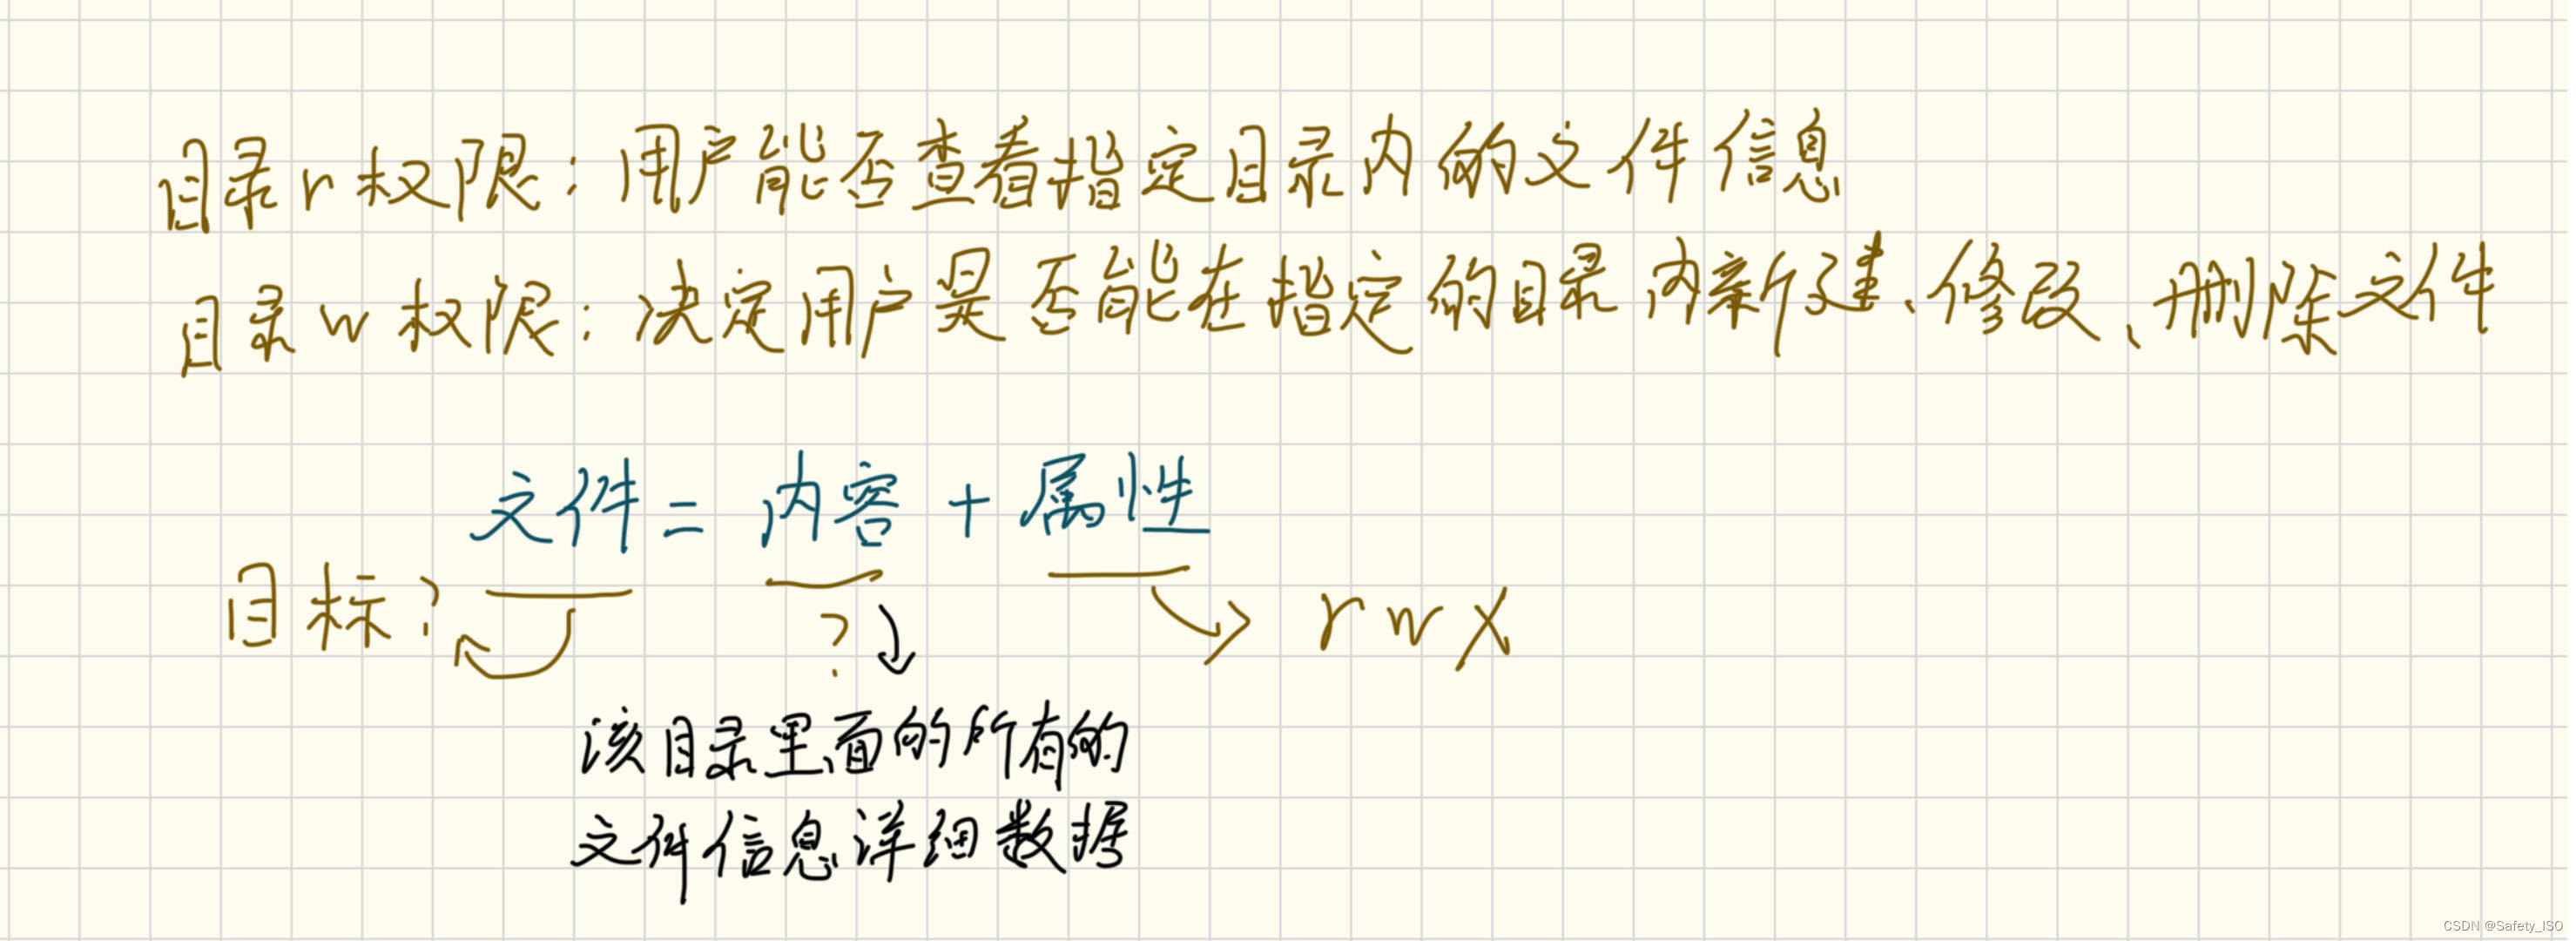 目录r权限：用户能否查看指定目录内的文件信息
目录w权限：决定用户是否能在指定的目录内新建、修改、删除文件
文件 = 内容 + 属性
目标？
? rwx
该目录里面的所有的
文件信息详细数据
CSDN @Safety_ISO